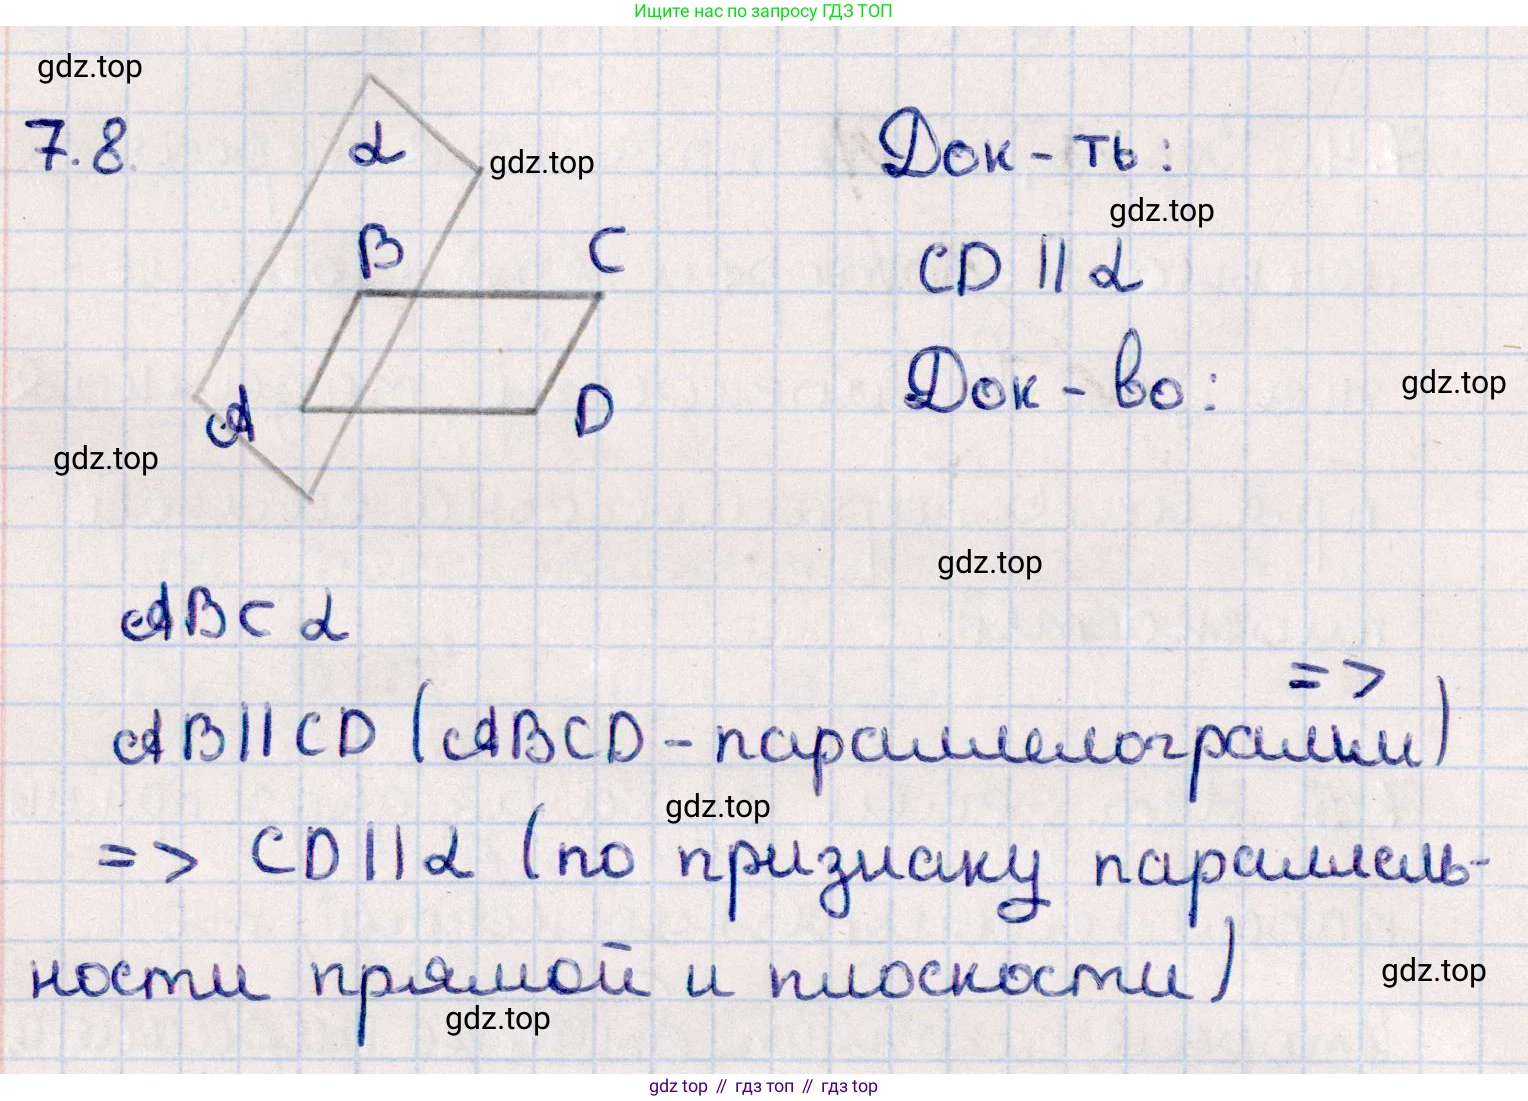 Ищите нас по запросу ГДЗ ТОП
gdz.top
7.8.
α
gdz.top
Док-ть:
gdz.top
B
C
CD || α
Док-во:
gdz.top
A
D
gdz.top
gdz.top
ABC α
=>
AB||CD (ABCD - параллелограмм)
gdz.top
=> CD||α (по признаку параллель-
ности прямой и плоскости)
gdz.top
gdz.top
gdz top // гдз топ // гдз top